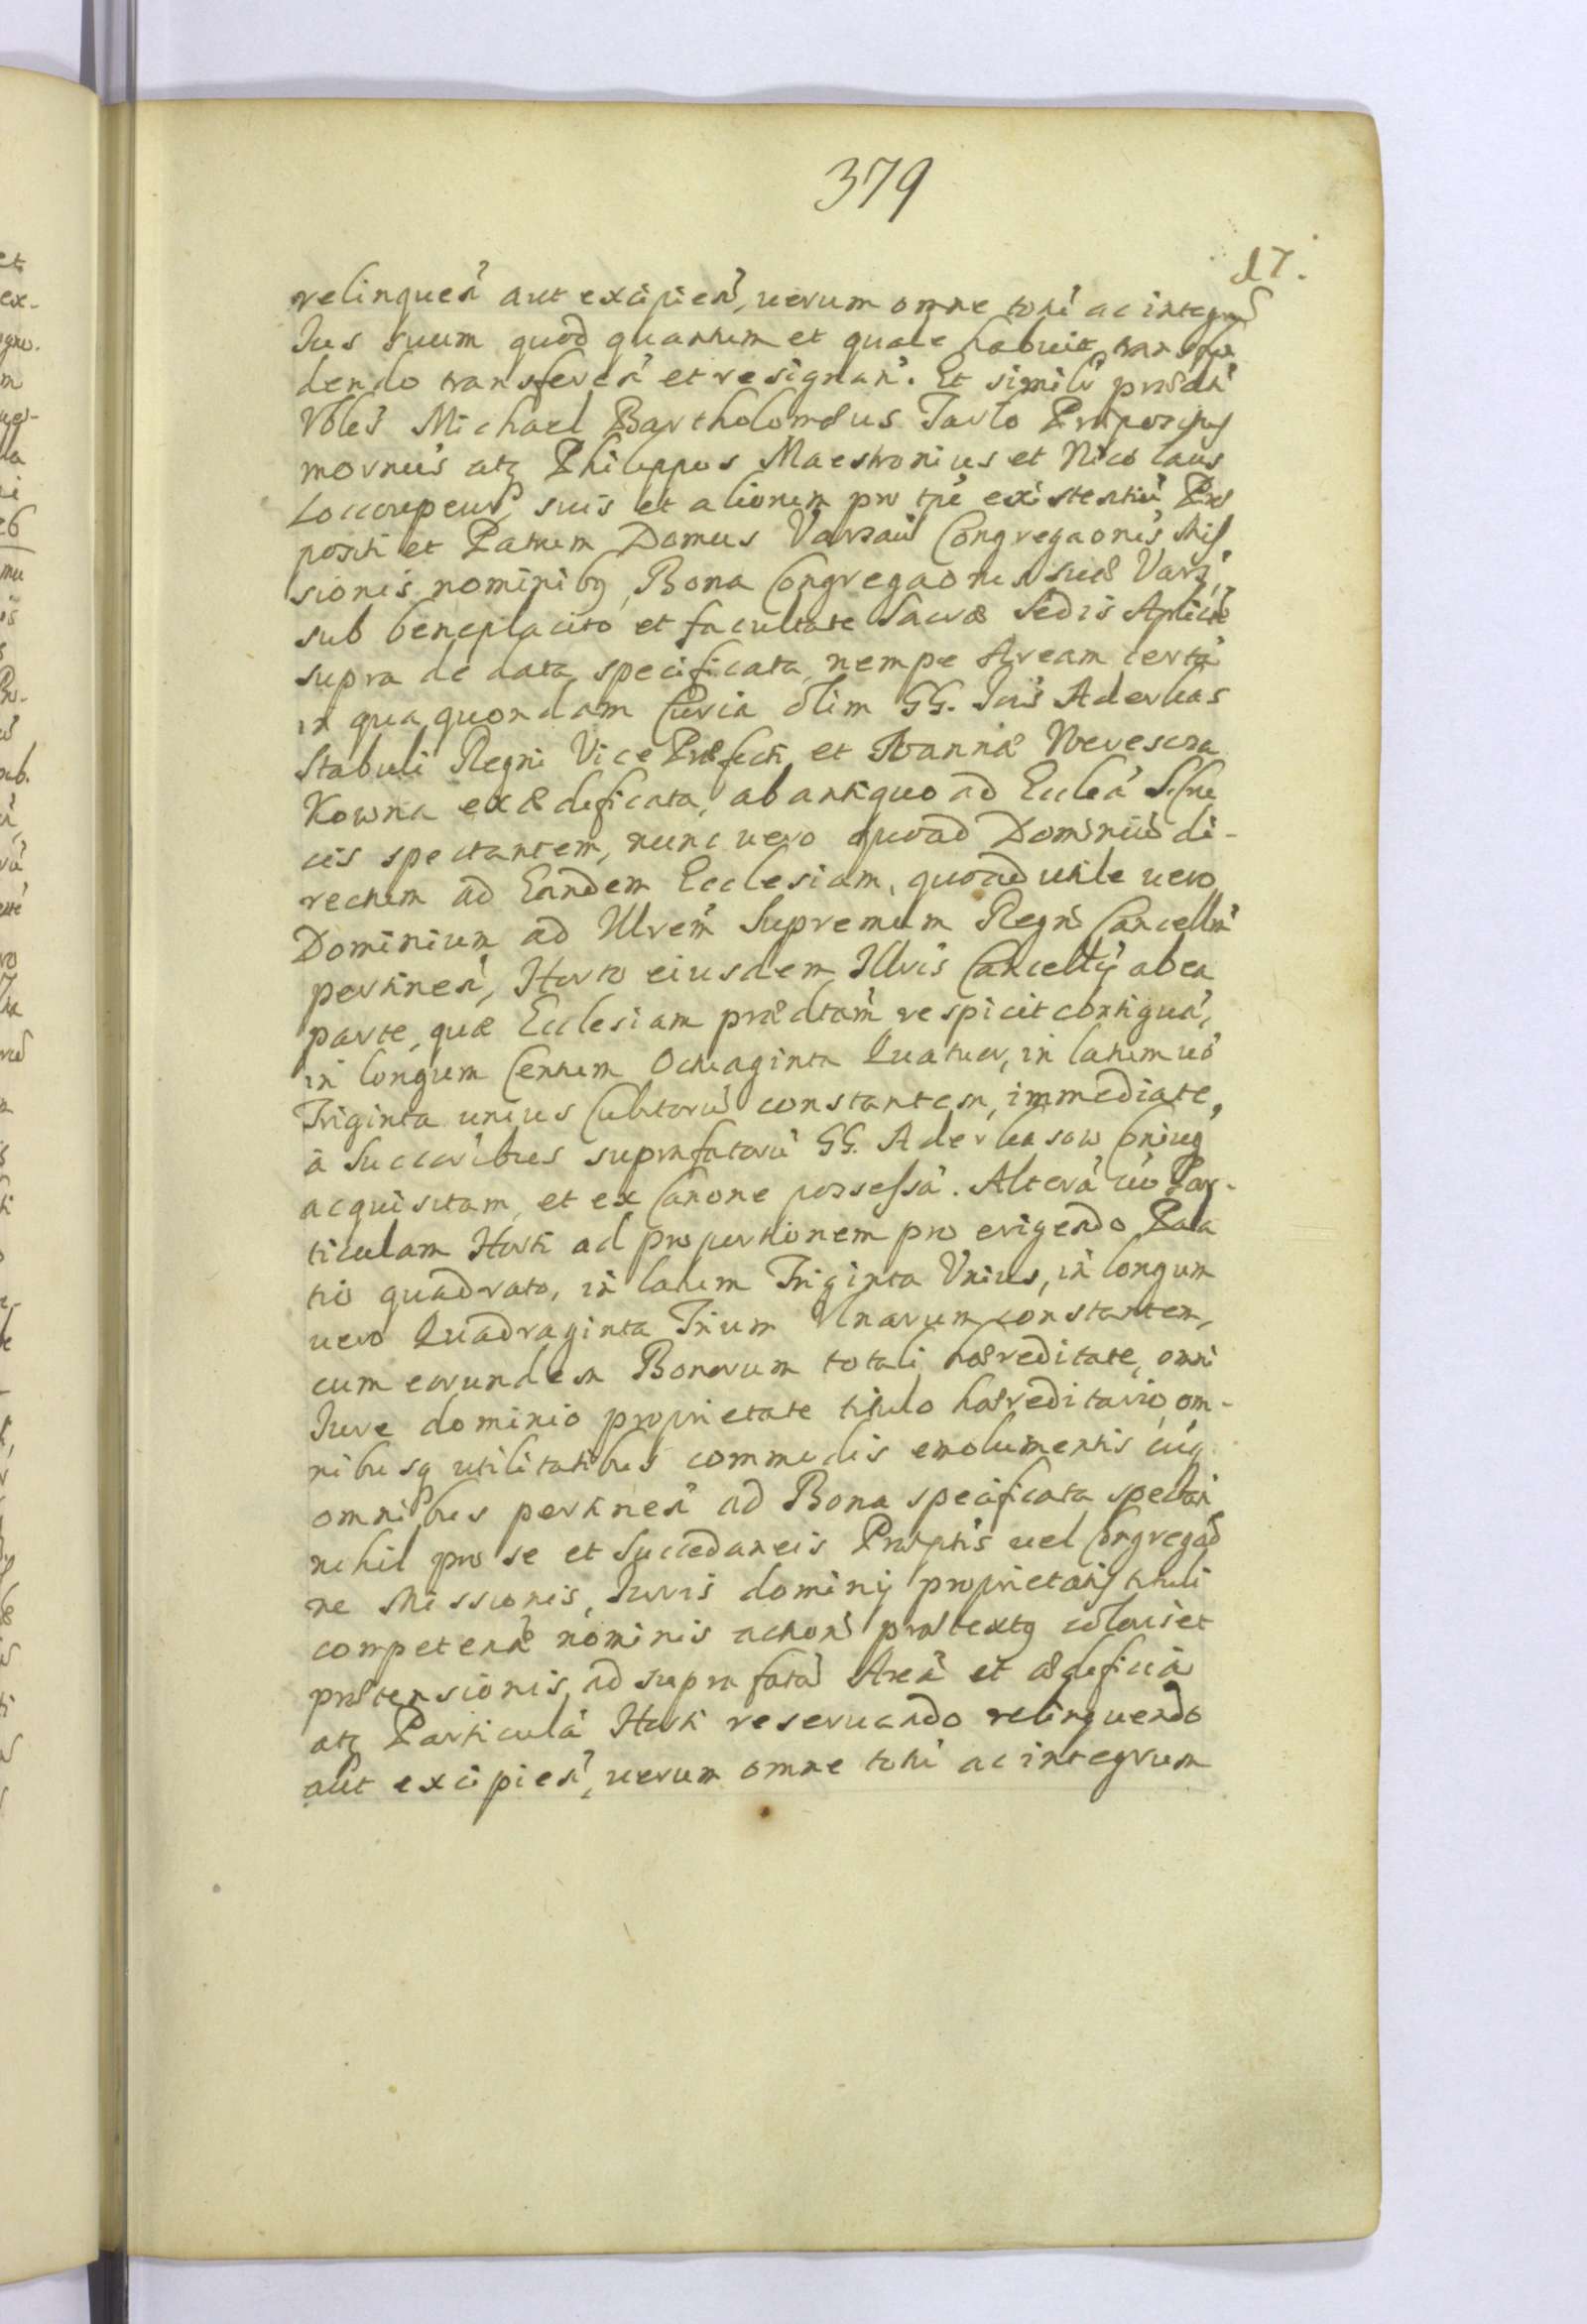 379
17.
relinqueń aut excipień, uerum omne totū ac integrū
Ius suum quod quantum et quale habuit, transfun
dendo transfereń et resignań. Et similr prædti
Vbles Michael Bartholomæus Tarlo Præpositus
mornus atq Philippus Maestronius et Nicolaus
suis et aliorum pro tpe existentiū Præ
positi et Patrum Domus Varsaui Congregaonis Mis
sionis nominibq, Bona Congregaonis suæ Vars:
sub beneplacito et facultate Sacræ Sedis Aplicæ
supra de data specificata, nempe Aream certā
in qua quondam Curia olim GG. Ioīs Aderkas
Stabuli Regni Vice Præfecti et Ioannæ Werescza
Kowna exædificata, ab antiquo ad Eccleā S. Cru
cis spectantem, nunc uero quoad Dominiū di-
rectum ad Eandem Ecclesiam, quoad utile uero
Dominium ad Illrem Supremum Regni Cancellrū
pertineń, Horto eiusdem Illris Cancellrij ab ea
parte, quæ Ecclesiam prædtam respicit contiguā,
in longum Centum Octuaginta Quatuor, in latum uo
Triginta unius Cubitorū constantem, immediate,
à Succoribus suprafatorū GG. Aderkasow Coniug
acquisitam, et ex Canone possessā. Alterā uo Par-
ticulam Horti ad proportionem pro erigendo Pala
tio quadrato, in latum Triginta Unius, in longum
uero Quadraginta Trium Vlnarum constantem,
cum eorundem Bonorum totali hæreditate, omni
Iure dominio proprietate titulo hæreditario, om-
nibusq utilitatibus commodis emolumentis cuq
omnibus pertineń ad Bona specificata spectań
nihil pro se et Succedaneis Præptis uel Congregao
ne Missionis, Iuris dominij proprietatis tituli
competeń nominis actionis prætextq coloris et
prætensionis, ad suprafatā Areā et ædificia
atq Particulā Horti reseruando relinquendo
aut excipień, uerum omne totū ac integrum